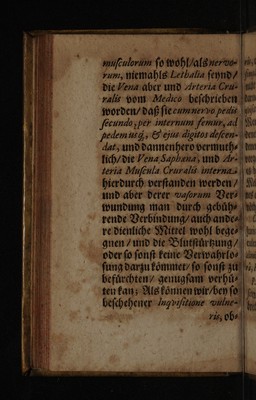 musculorum so wohl/als nervo-
rum, niemahls Lethalia seynd/
die Vena aber und Arteria Cru-
ralis vom Medico beschrieben
worden/ daß sie cum nervo pedis
secundo, per internum femur, ad
pedem utq́;, & ejus digitos descen-
dat, und dannenhero vermuth-
lich/die Vena Saphana, und Ar-
teria Muscula Cruralis interna
hierdurch verstanden werden/
und aber derer vasorum Ver-
wundung man durch gebüh-
rende Verbindung/auch ande-
re dienliche Mittel wohl bege-
gnen/und die Blutstürtzung/
oder so sonst keine Verwahrlo-
sung darzu kömmet/ so sonst zu
befürchten/ genugsam verhü-
ten kan; Als können wir/bey so
beschehener Inquisitione vulne-
ris, ob-